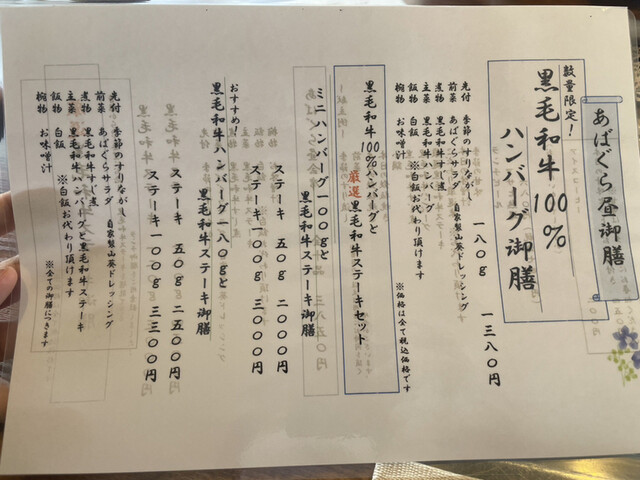 あばぐら昼御膳
数量限定！
黒毛和牛100％
ハンバーグ御膳
一八〇g 一三八〇円
先付 季節のすりながし
前菜 あばぐらサラダ 自家製山葵ドレッシング
煮物 黒毛和牛すじ煮
主菜 黒毛和牛ハンバーグ
飯物 白飯 ※白飯お代わり頂けます
椀物 お味噌汁
※価格は全て税込価格です
黒毛和牛100％ハンバーグと
厳選黒毛和牛ステーキセット
ミニハンバーグ一〇〇gと
黒毛和牛ステーキ御膳
ステーキ 五〇g 二〇〇〇円
ステーキ一〇〇g 三〇〇〇円
おすすめ
黒毛和牛ハンバーグ一八〇gと
黒毛和牛ステーキ御膳
ステーキ 五〇g 二五〇〇円
ステーキ一〇〇g 三三〇〇円
先付 季節のすりながし
前菜 あばぐらサラダ 自家製山葵ドレッシング
煮物 黒毛和牛すじ煮
主菜 黒毛和牛ハンバーグと黒毛和牛ステーキ
飯物 白飯 ※白飯お代わり頂けます
椀物 お味噌汁
※全ての御膳につきます